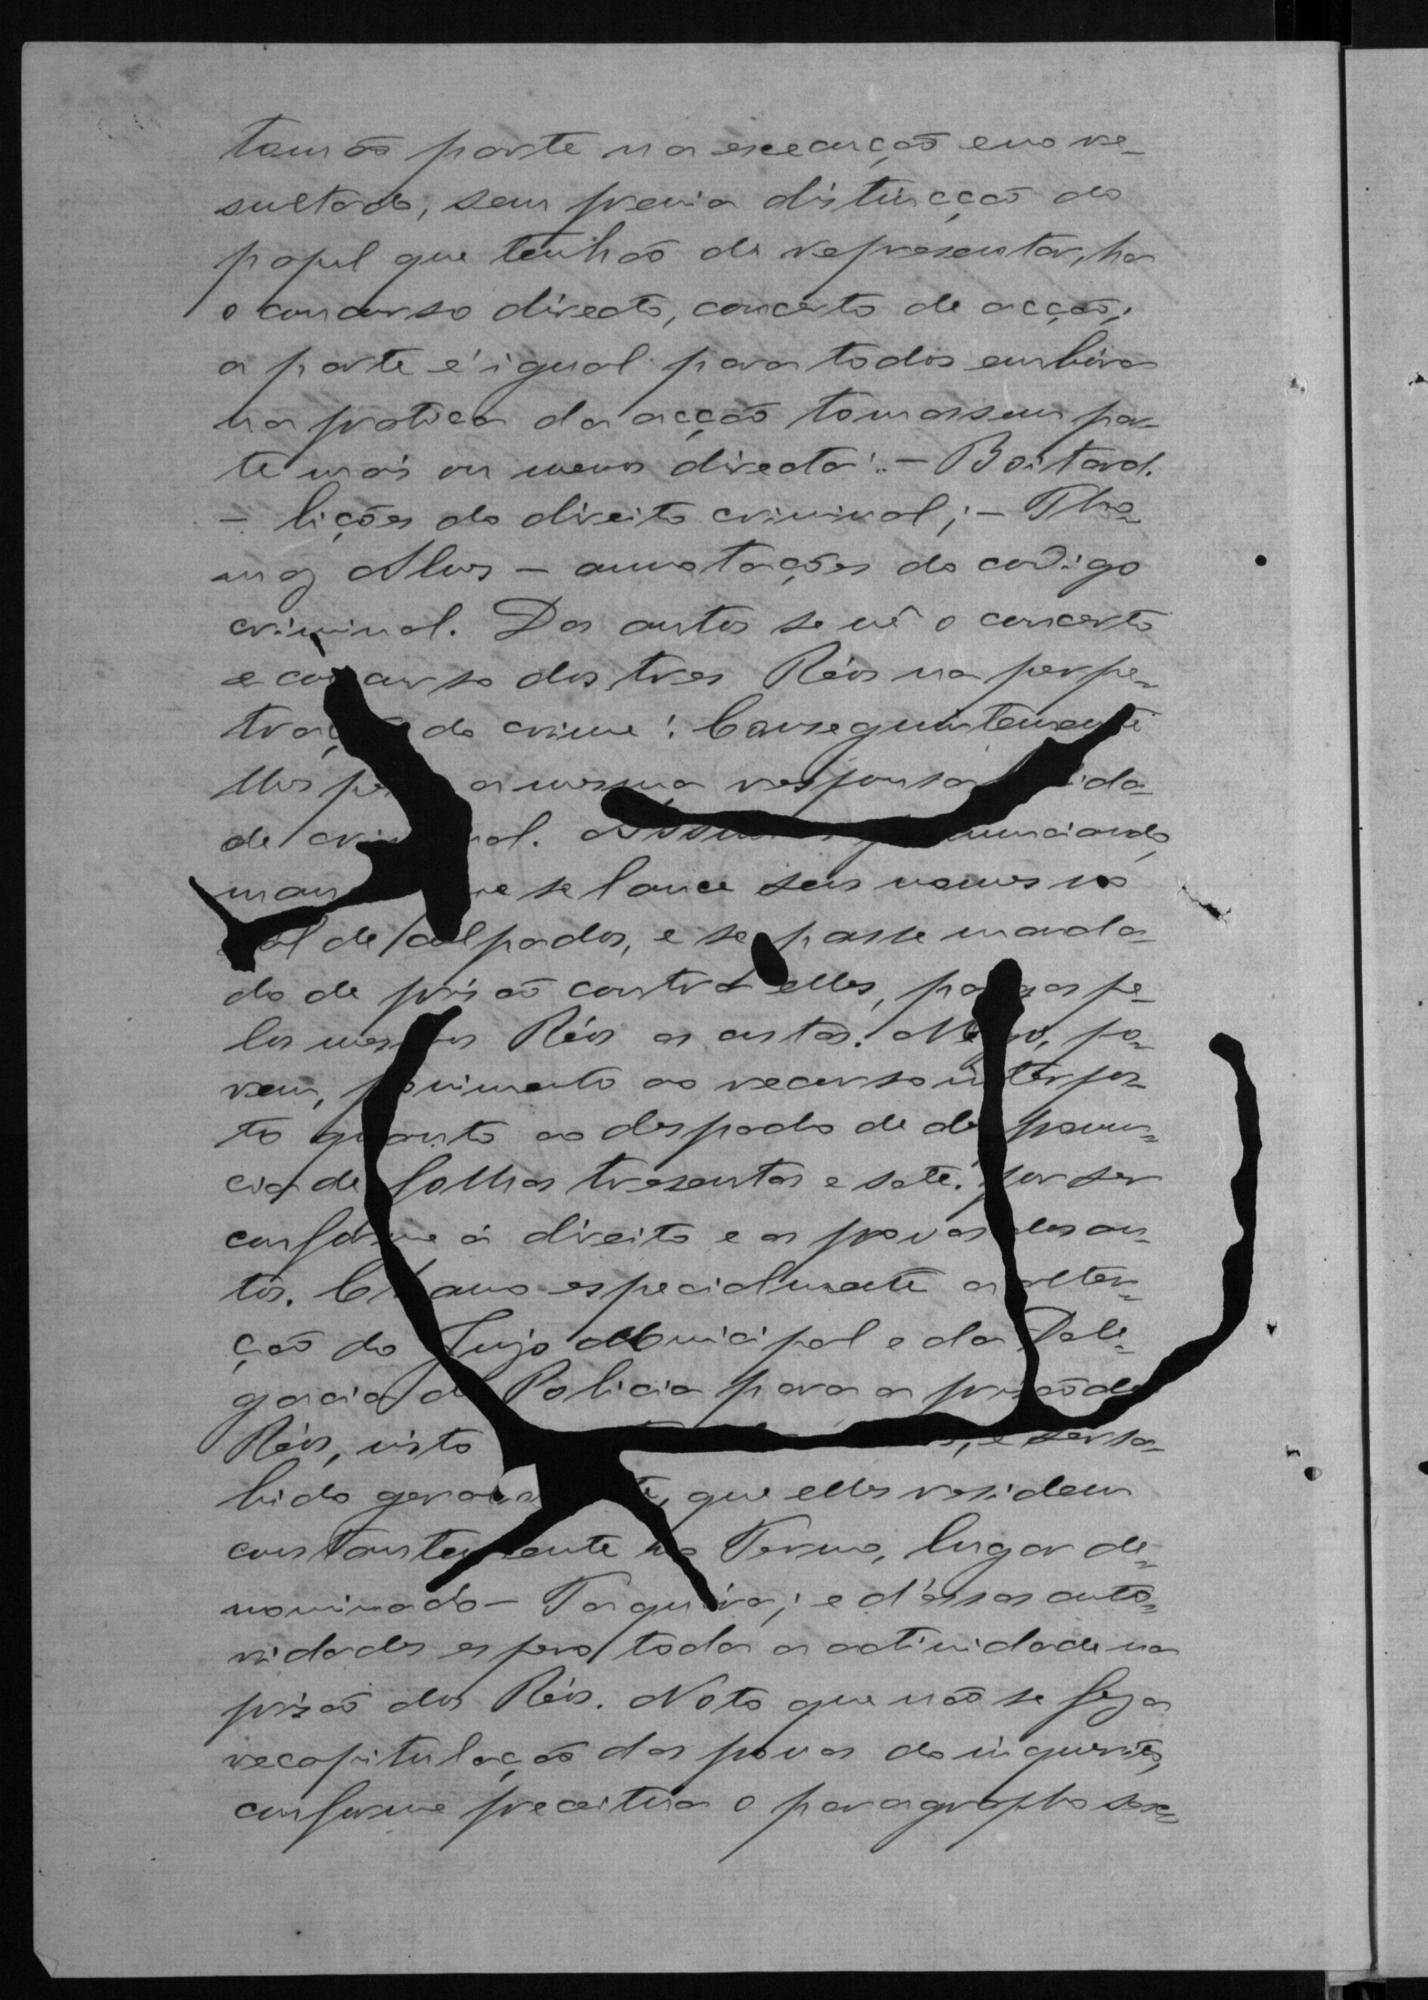 tomão parte na execução e no re-
sultado, sem previa distincção do
papel que tenhão de representar, ha
o concurso directo, concerto de acção;
a parte é igual para todos embóra
na pratica da acção tomassem par-
te mais ou menos directa". — Boitard.
— lições do direito criminal; — Tho-
maz Alves — annotações do codigo
criminal. Dos autos se vê o concerto
e concurso dos tres Réos na perpe-
do crime: Conseguintemente
a mesma
de
se lance seus nomes no
de culpados, e se passe manda-
do de prisão contra elles, pagas pe-
los mesmos Réos as custas. Nego, po-
rem, provimento ao recurso interpos-
to quanto ao despacho de despronun-
cia de folhas tresentas e sete, por ser
conforme á direito e as provas dos au-
tos. Chamo especialmente a atten-
ção do Juizo Municipal e da Dele-
gacia de Policia para a prisão de
Réos, visto e ser sa-
bido que elles residem
constantemente no Termo, lugar de-
nominado — e d'essas auto-
ridades espero toda a actividade na
prisão dos Réos. Noto que não se fez a
recapitulação das provas do inquerito,
conforme preceitua o paragrapho sex-